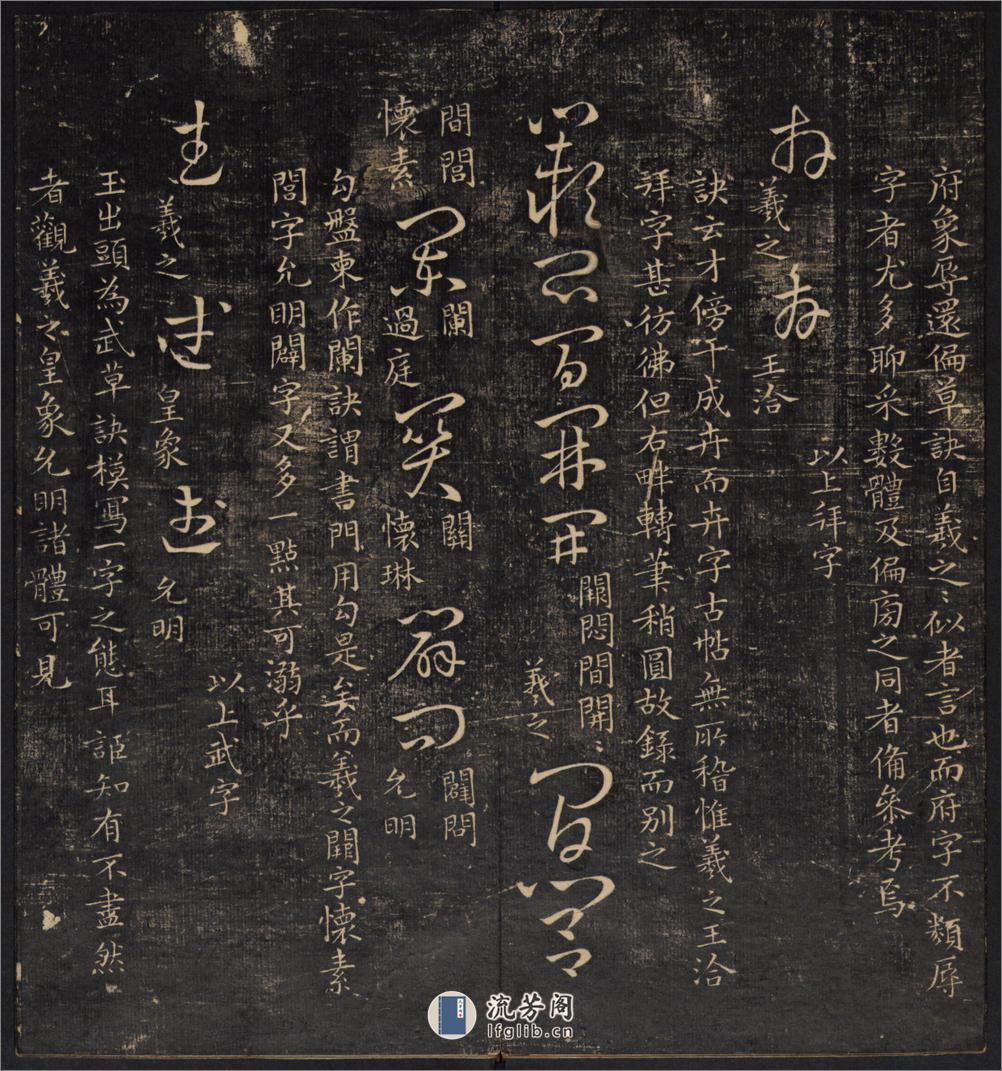 府象辱還偏草訣自羲之〻似者言也而府字不類辱
字者尤多聊采數體及偏㫄之同者備叅考焉
以上拜字
羲之
王洽
訣云才傍干成卉而卉字古帖無所稽惟羲之王洽
拜字甚彷彿但右畔轉筆稍圓故錄而别之
闞悶間開〻
羲之
間閭
懷素
闌
過庭
關
懷琳
闢問
允明
勾盤柬作闌訣謂書門用勾是矣而羲之闢字懷素
閭字允明闢字又多一點其可溺乎
以上武字
羲之
皇象
允明
玉出頭為武草訣模寫一字之態耳詎知有不盡然
者觀羲之皇象允明諸體可見
流芳阁
lfglib.cn